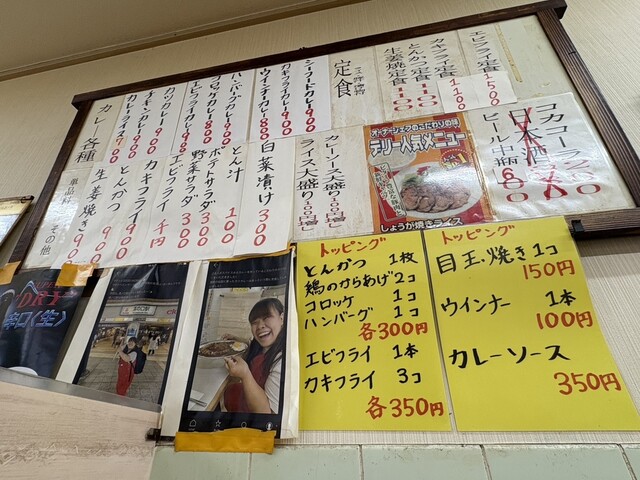 カレー各種
カレーライス 700
チキンカレー 900
カツカレー 900
エビフライカレー 900
コロッケカレー 800
ハンバーグカレー 900
ウインナカレー 800
カキフライカレー 900
シーフードカレー 900
定食
生姜焼定食 1100
とんかつ定食 1100
カキフライ定食 1100
エビフライ定食 1500
単品料理 その他
生姜焼き 900
とんかつ 900
カキフライ 900
エビフライ 千円
野菜サラダ 300
ポテトサラダ 300
とん汁 100
白菜漬け 300
ライス大盛り 100円増し
カレーソース大盛り 100円増し
オーナーシェフのこだわりの味
デリー人気メニュー
No.1
しょうが焼きライス
ビール中瓶 600
日本酒
コカコーラ 200
DRY
辛口〈生〉
トッピング
とんかつ 1枚
鶏のからあげ 2コ
コロッケ 1コ
ハンバーグ 1コ
各300円
エビフライ 1本
カキフライ 3コ
各350円
トッピング
目玉焼き 1コ
150円
ウインナー 1本
100円
カレーソース
350円